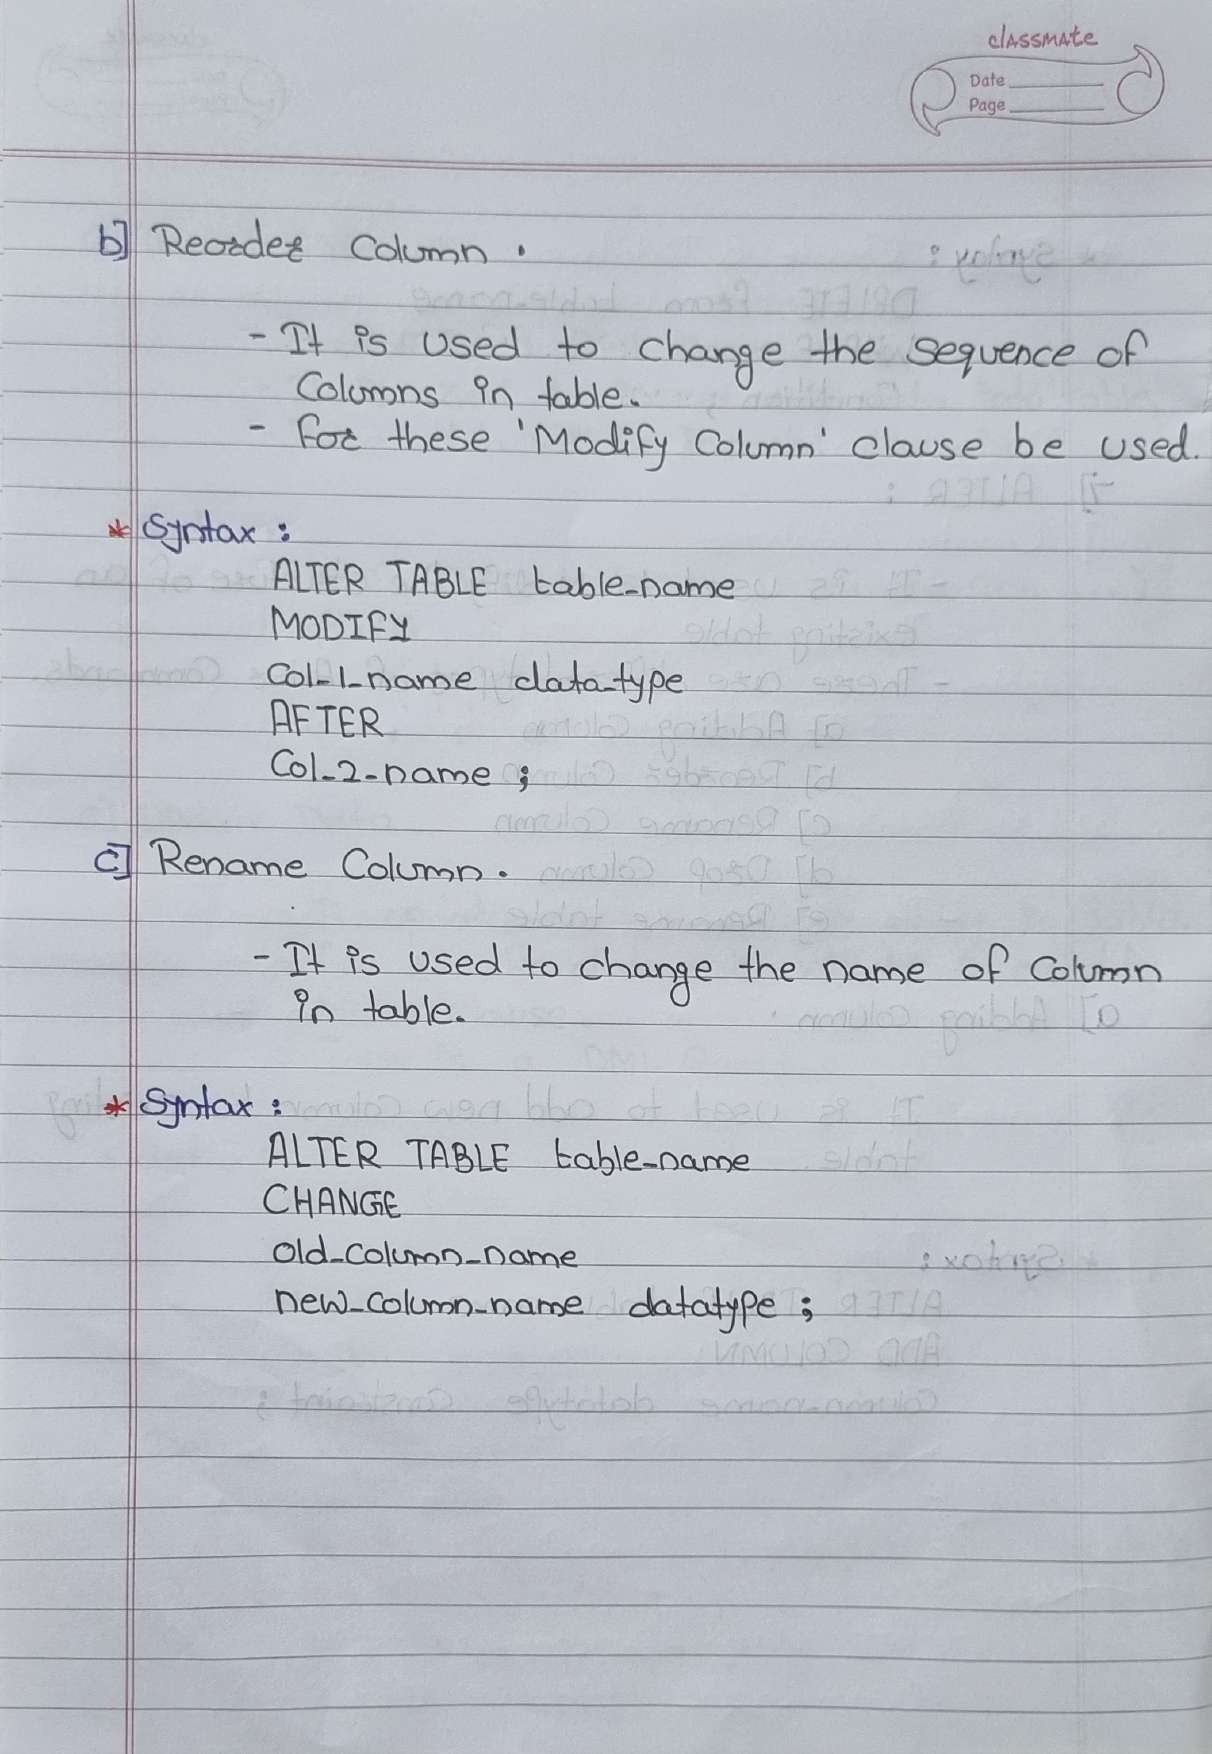 classmate
Date
Page
b] Reorder Column .
- It is used to change the sequence of
Columns in table.
- For these 'Modify Column' clause be used.
* Syntax :
ALTER TABLE table_name
MODIFY
Col_1_name data_type
AFTER
Col_2_name ;
c] Rename Column .
- It is used to change the name of Column
in table.
* Syntax :
ALTER TABLE table_name
CHANGE
old_column_name
new_column_name datatype ;